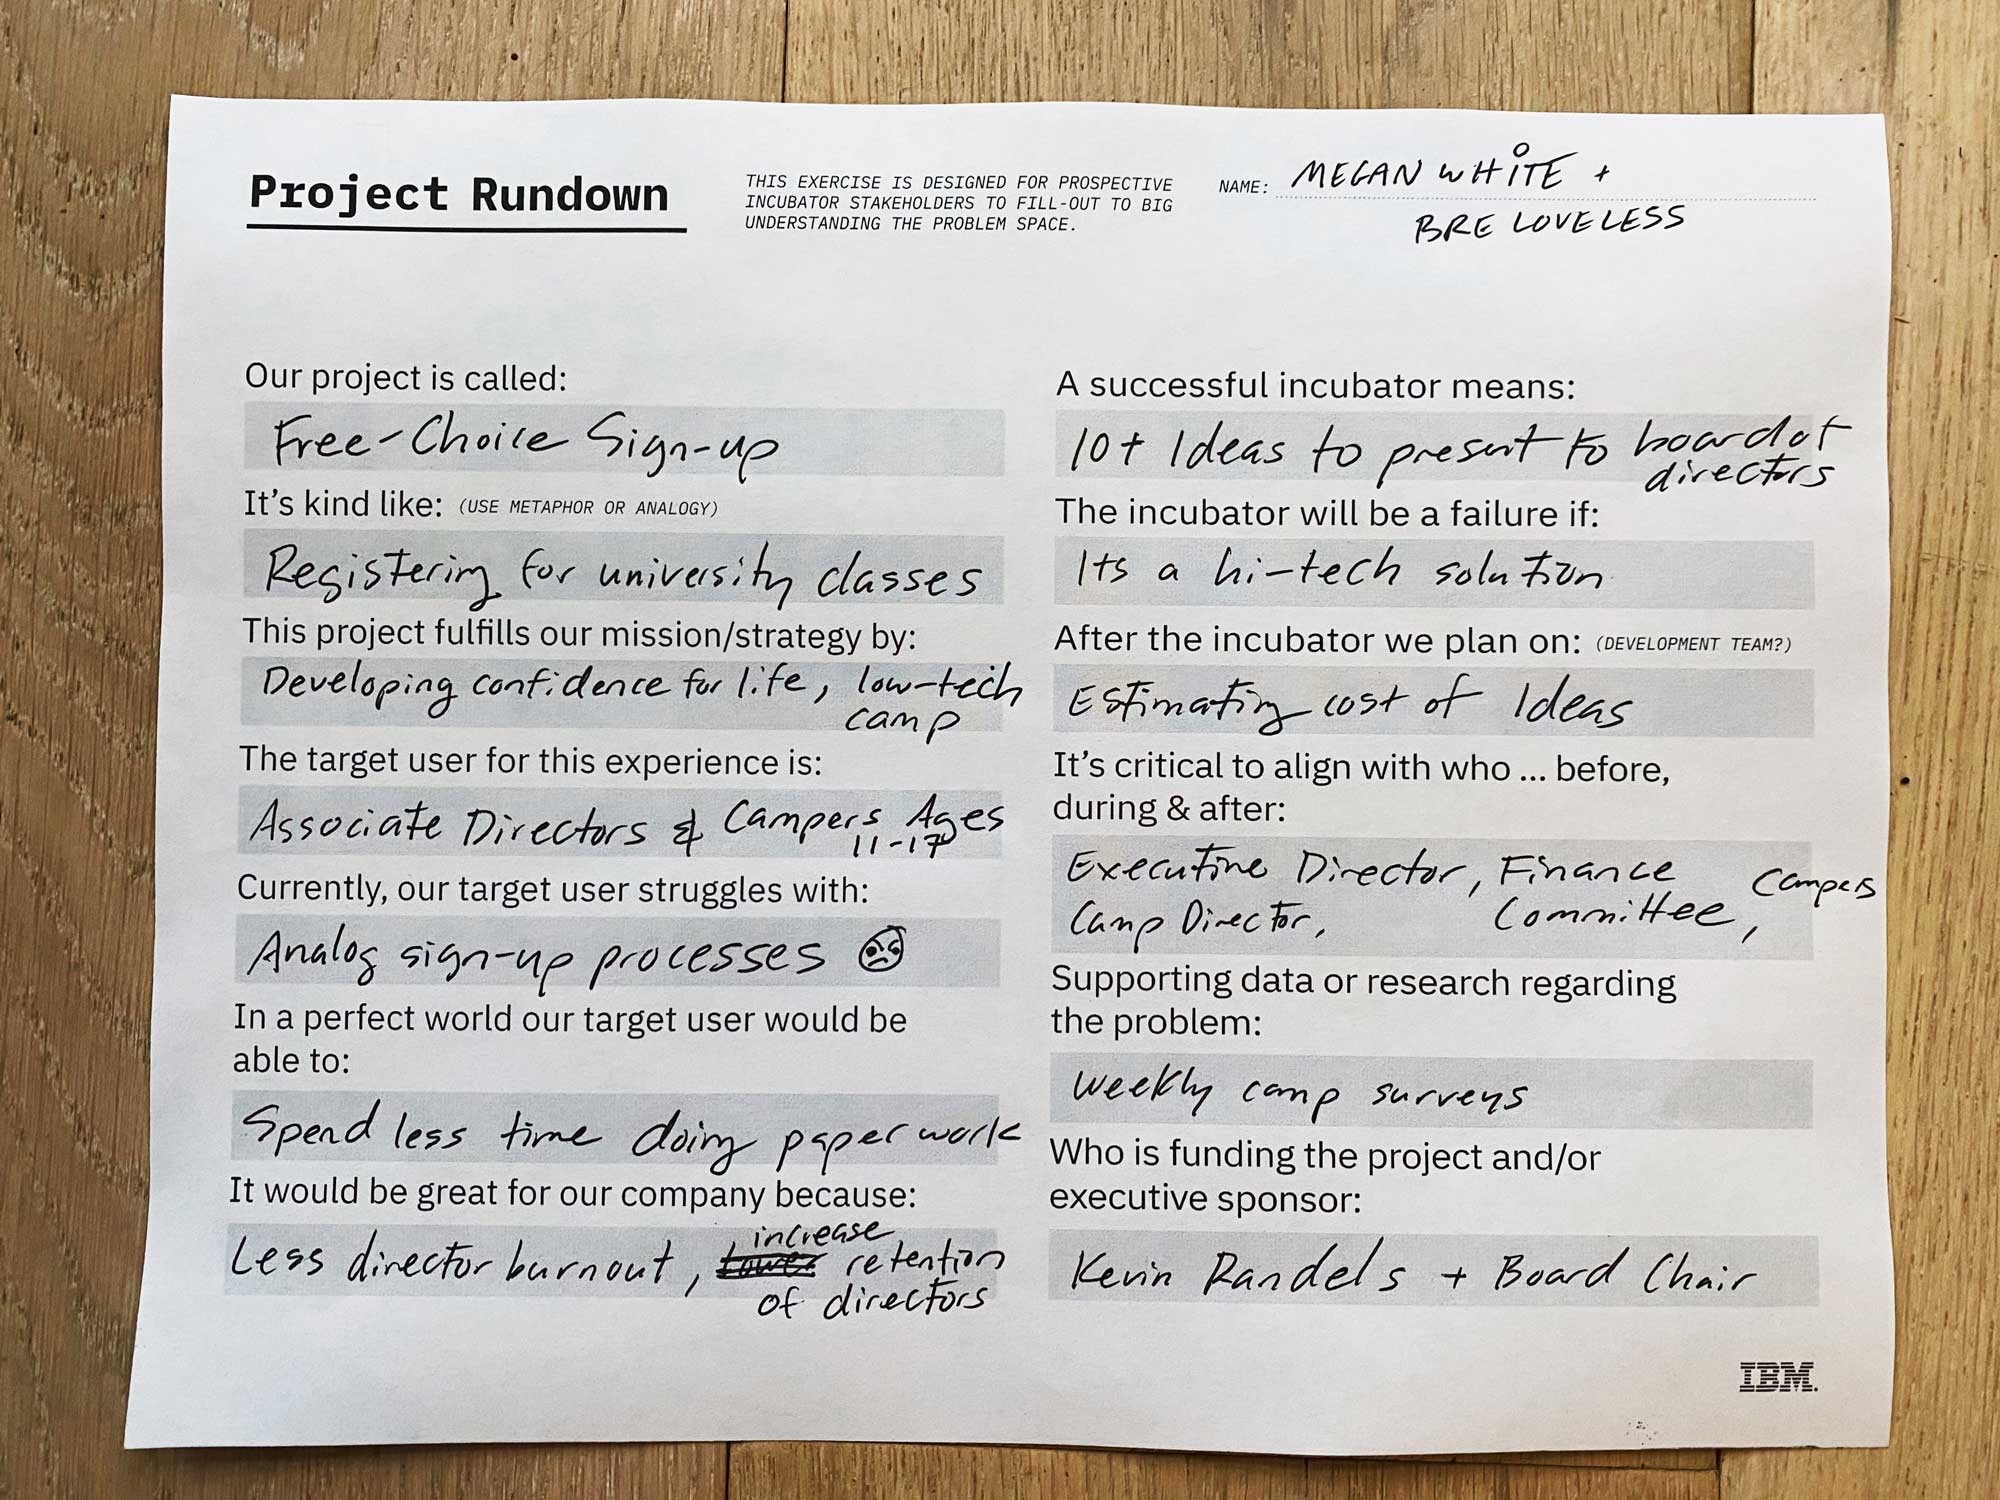 Project Rundown
THIS EXERCISE IS DESIGNED FOR PROSPECTIVE
INCUBATOR STAKEHOLDERS TO FILL-OUT TO BIG
UNDERSTANDING THE PROBLEM SPACE.
NAME: MEGAN WHITE +
BRE LOVELESS
Our project is called:
Free-Choice Sign-up
It's kind like: (USE METAPHOR OR ANALOGY)
Registering for university classes
This project fulfills our mission/strategy by:
Developing confidence for life, low-tech
camp
The target user for this experience is:
Associate Directors & Campers Ages
11-17
Currently, our target user struggles with:
Analog sign-up processes
In a perfect world our target user would be
able to:
Spend less time doing paper work
It would be great for our company because:
increase
Less director burnout, lower retention
of directors
A successful incubator means:
10+ Ideas to present to board of
directors
The incubator will be a failure if:
Its a hi-tech solution
After the incubator we plan on: (DEVELOPMENT TEAM?)
Estimating cost of Ideas
It's critical to align with who ... before,
during & after:
Executive Director, Finance Campers
Camp Director, Committee,
Supporting data or research regarding
the problem:
Weekly camp surveys
Who is funding the project and/or
executive sponsor:
Kevin Randels + Board Chair
IBM.